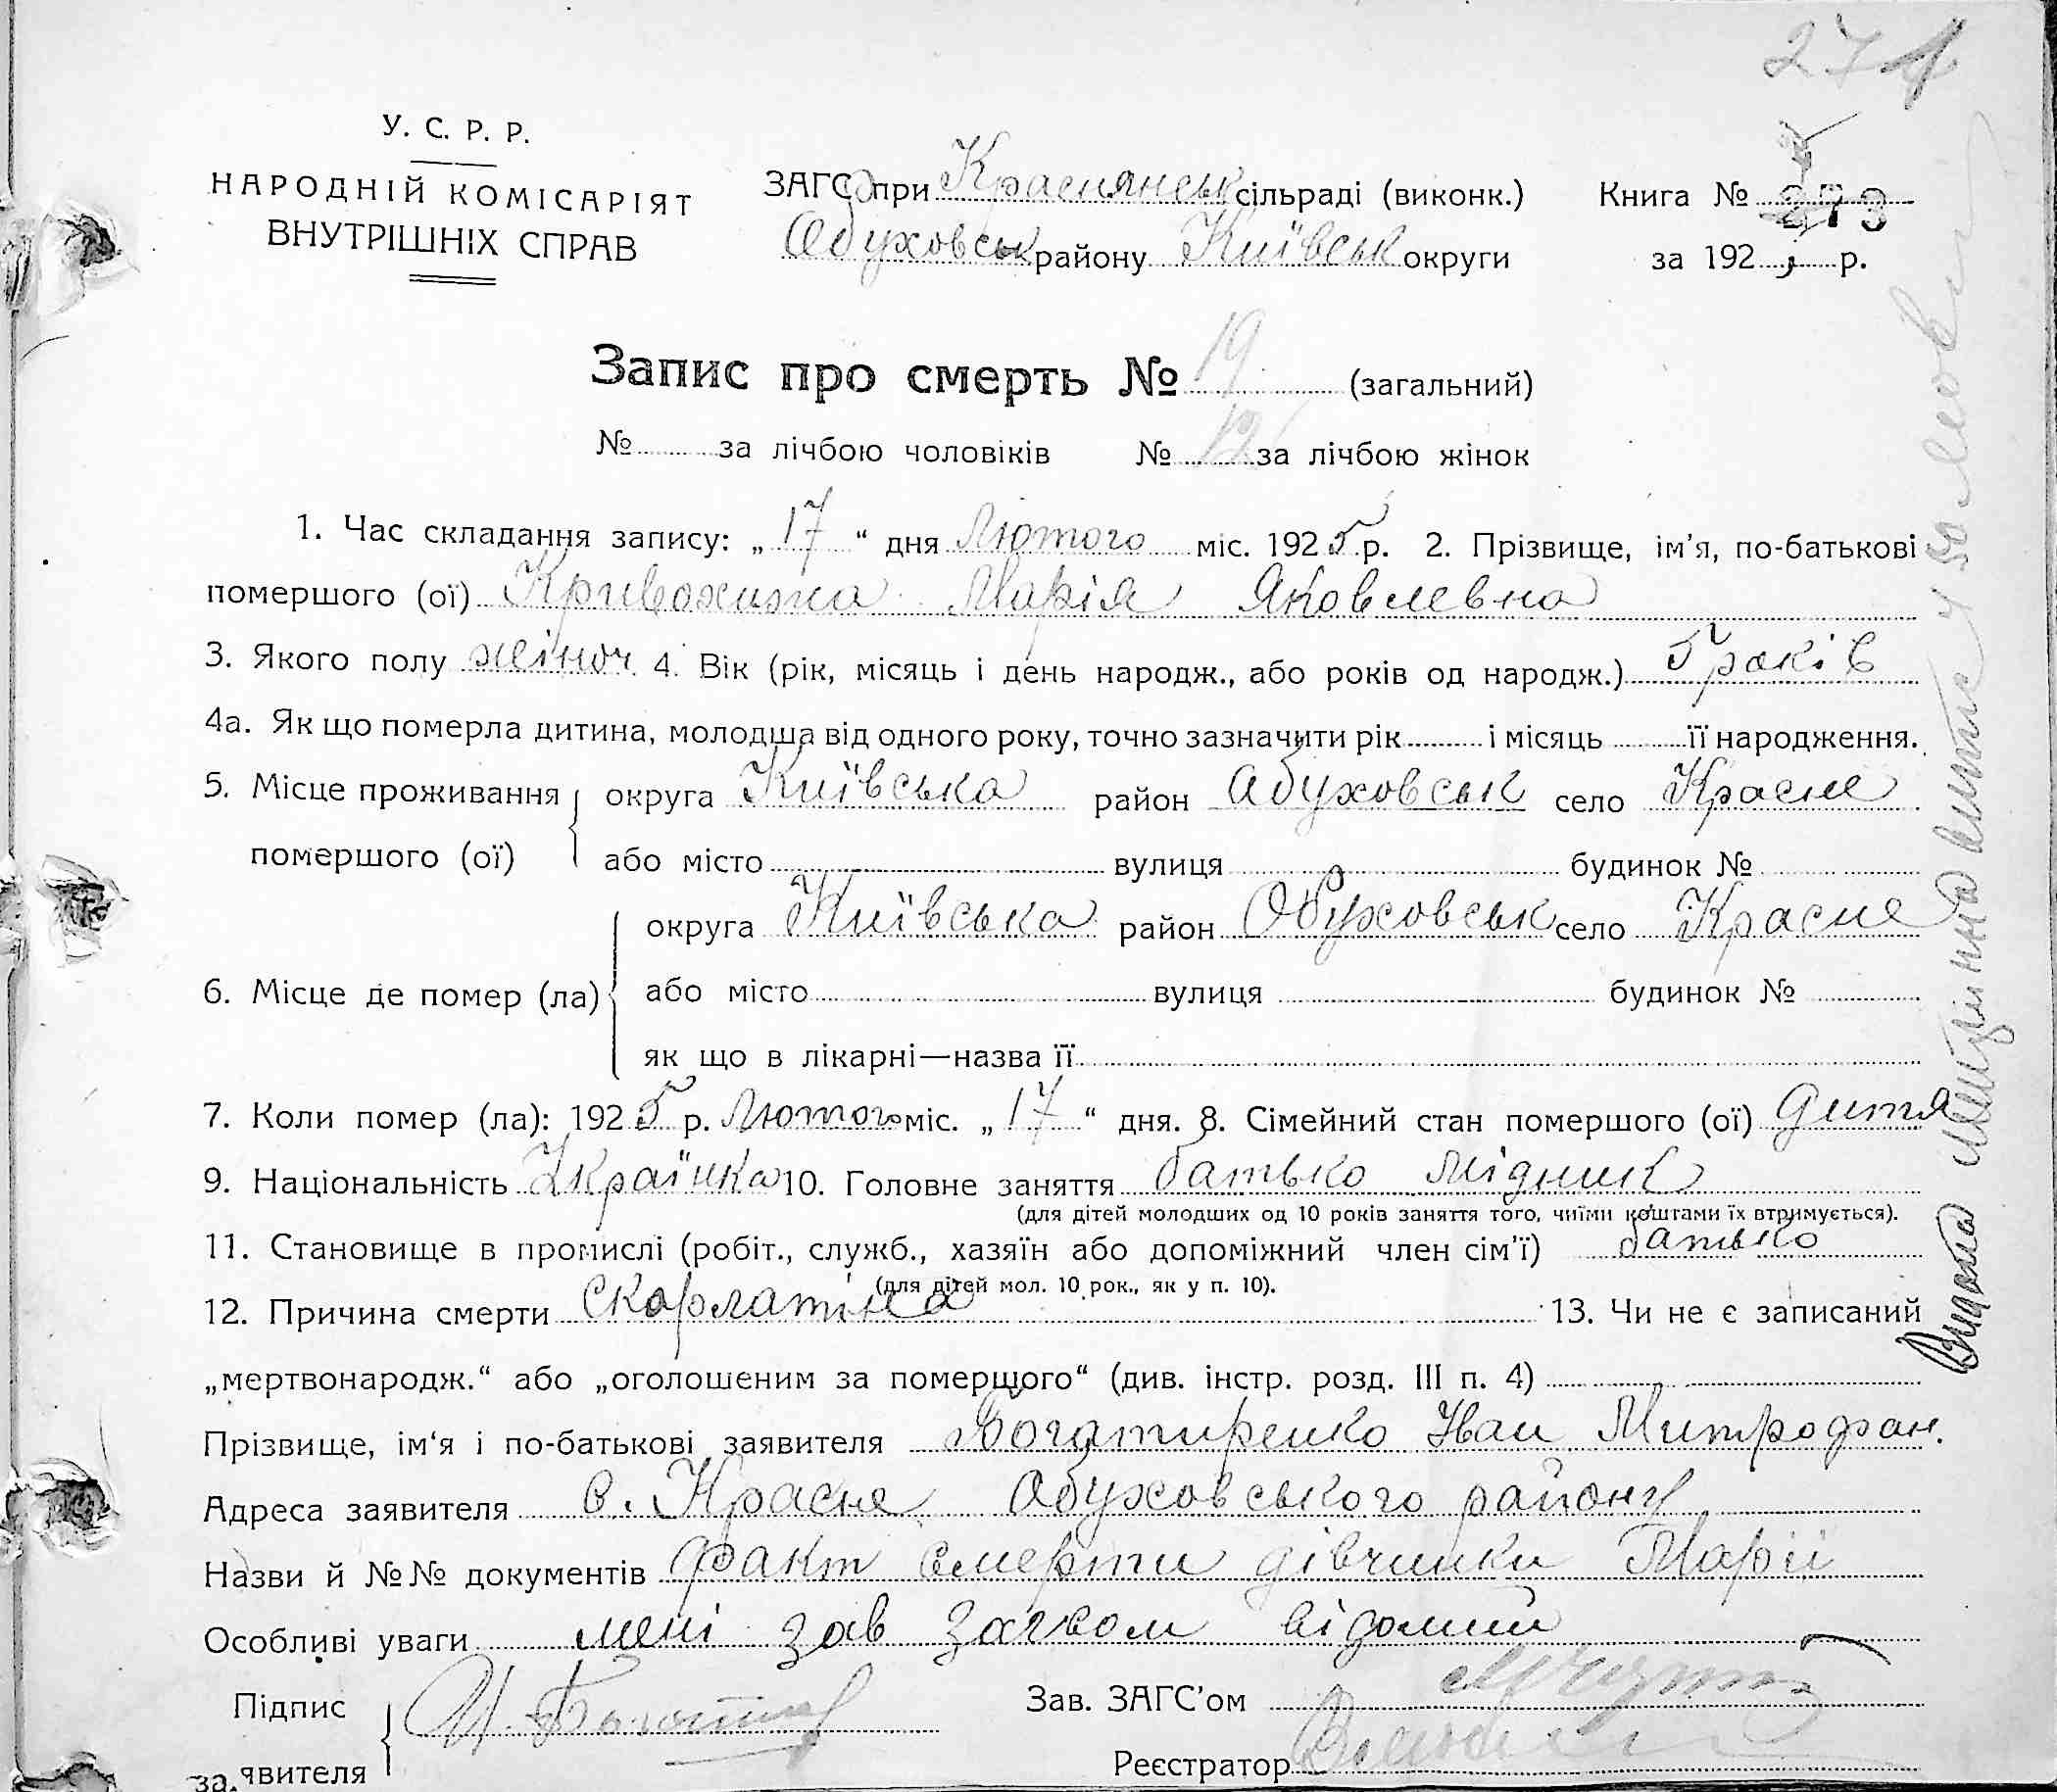 274
У. С. Р. Р.
НАРОДНІЙ КОМІСАРІЯТ
ВНУТРІШНІХ СПРАВ
ЗАГС при Краснянськ сільраді (виконк.)
Обуховськ району Київськ округи
Книга № 273
за 192 р.
Запис про смерть № 19 (загальний)
№ за лічбою чоловіків № 12 за лічбою жінок
1. Час складання запису: „17“ дня Лютого міс. 1925 р. 2. Прізвище, ім'я, по-батькові
помершого (ої) Кривохижа Марія Яковлевна
3. Якого полу жіноч 4. Вік (рік, місяць і день народж., або років од народж.) 5 років
4а. Як що померла дитина, молодша від одного року, точно зазначити рік і місяць її народження.
5. Місце проживання округа Київська район Абуховськ село Красне
помершого (ої) або місто вулиця будинок №
округа Київська район Обуховськ село Красне
6. Місце де помер (ла) або місто вулиця будинок №
як що в лікарні—назва її
7. Коли помер (ла): 1925 р. Лютого міс. „17“ дня. 8. Сімейний стан помершого (ої) дитя
9. Національність Українка 10. Головне заняття батько мідник
(для дітей молодших од 10 років заняття того, чиїми коштами їх втримується).
11. Становище в промислі (робіт., служб., хазяїн або допоміжний член сім'ї) батько
(для дітей мол. 10 рок., як у п. 10).
12. Причина смерти Скарлатіна 13. Чи не є записаний
„мертвонародж.“ або „оголошеним за померщого“ (див. інстр. розд. III п. 4)
Прізвище, ім'я і по-батькові заявителя Богатиренко Іван Митрофан.
Адреса заявителя с. Красне Абуховського району
Назви й №№ документів Факт смерти дівчинки Марії
Особливі уваги мені зав Загсом відомий
Підпис
заявителя
Зав. ЗАГС'ом
Реєстратор